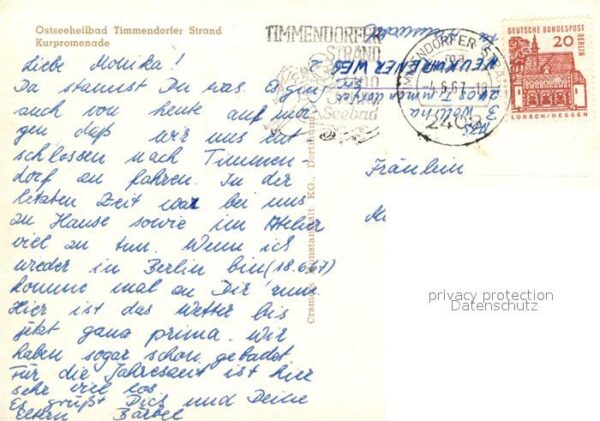 Ostseeheilbad Timmendorfer Strand
Kurpromenade
Liebe Monika!
Da staunst Du was. Es ging
auch von heute auf mor-
gen daß wir uns ent
schlossen nach Timmen-
dorf an fahren. In der
letzten Zeit war bei uns
zu Hause sowie im Atelier
viel zu tun. Wenn ich
wieder in Berlin bin (18.6.67)
komme mal an Dir rum.
Hier ist das Wetter bis
jetzt ganz prima. Wir
haben sogar schon gebadet
Für die Jahreszeit ist hier
sehr viel los
Es grüßt Dich und Deine
Eltern Bärbel
TIMMENDORFER
STRAND
Seebad
NEUKUHRENER WEG
TIMMENDORFER STRAND
2408
DEUTSCHE BUNDESPOST
BERLIN
20
LORSCH/HESSEN
Fräulein
privacy protection
Datenschutz